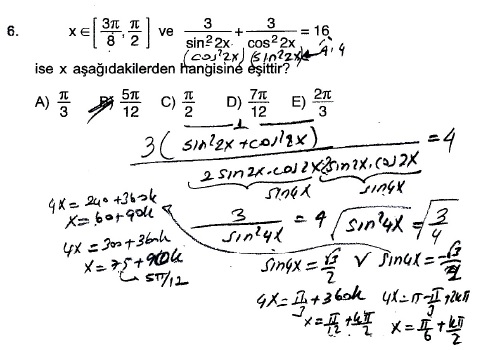 6. x∈[3π/8, π/2] ve 3/sin²2x + 3/cos²2x = 16
(cos²2x) (sin²2x)
ise x aşağıdakilerden hangisine eşittir?
A) π/3 B) 5π/12 C) π/2 D) 7π/12 E) 2π/3
1
3(sin²2x+cos²2x) = 4
2sin2x.cos2x 2sin2x.cos2x
sin4x sin4x
4x=240+360k
x=60+90k
3/sin²4x = 4
√sin²4x = √3/4
4x=300+360k
x=75+90k
5π/12
sin4x=√3/2 ∨ sin4x=-√3/2
4x=π/3+360k
x=π/12+kπ/2
4x=π-π/3+2kπ
x=π/6+kπ/2